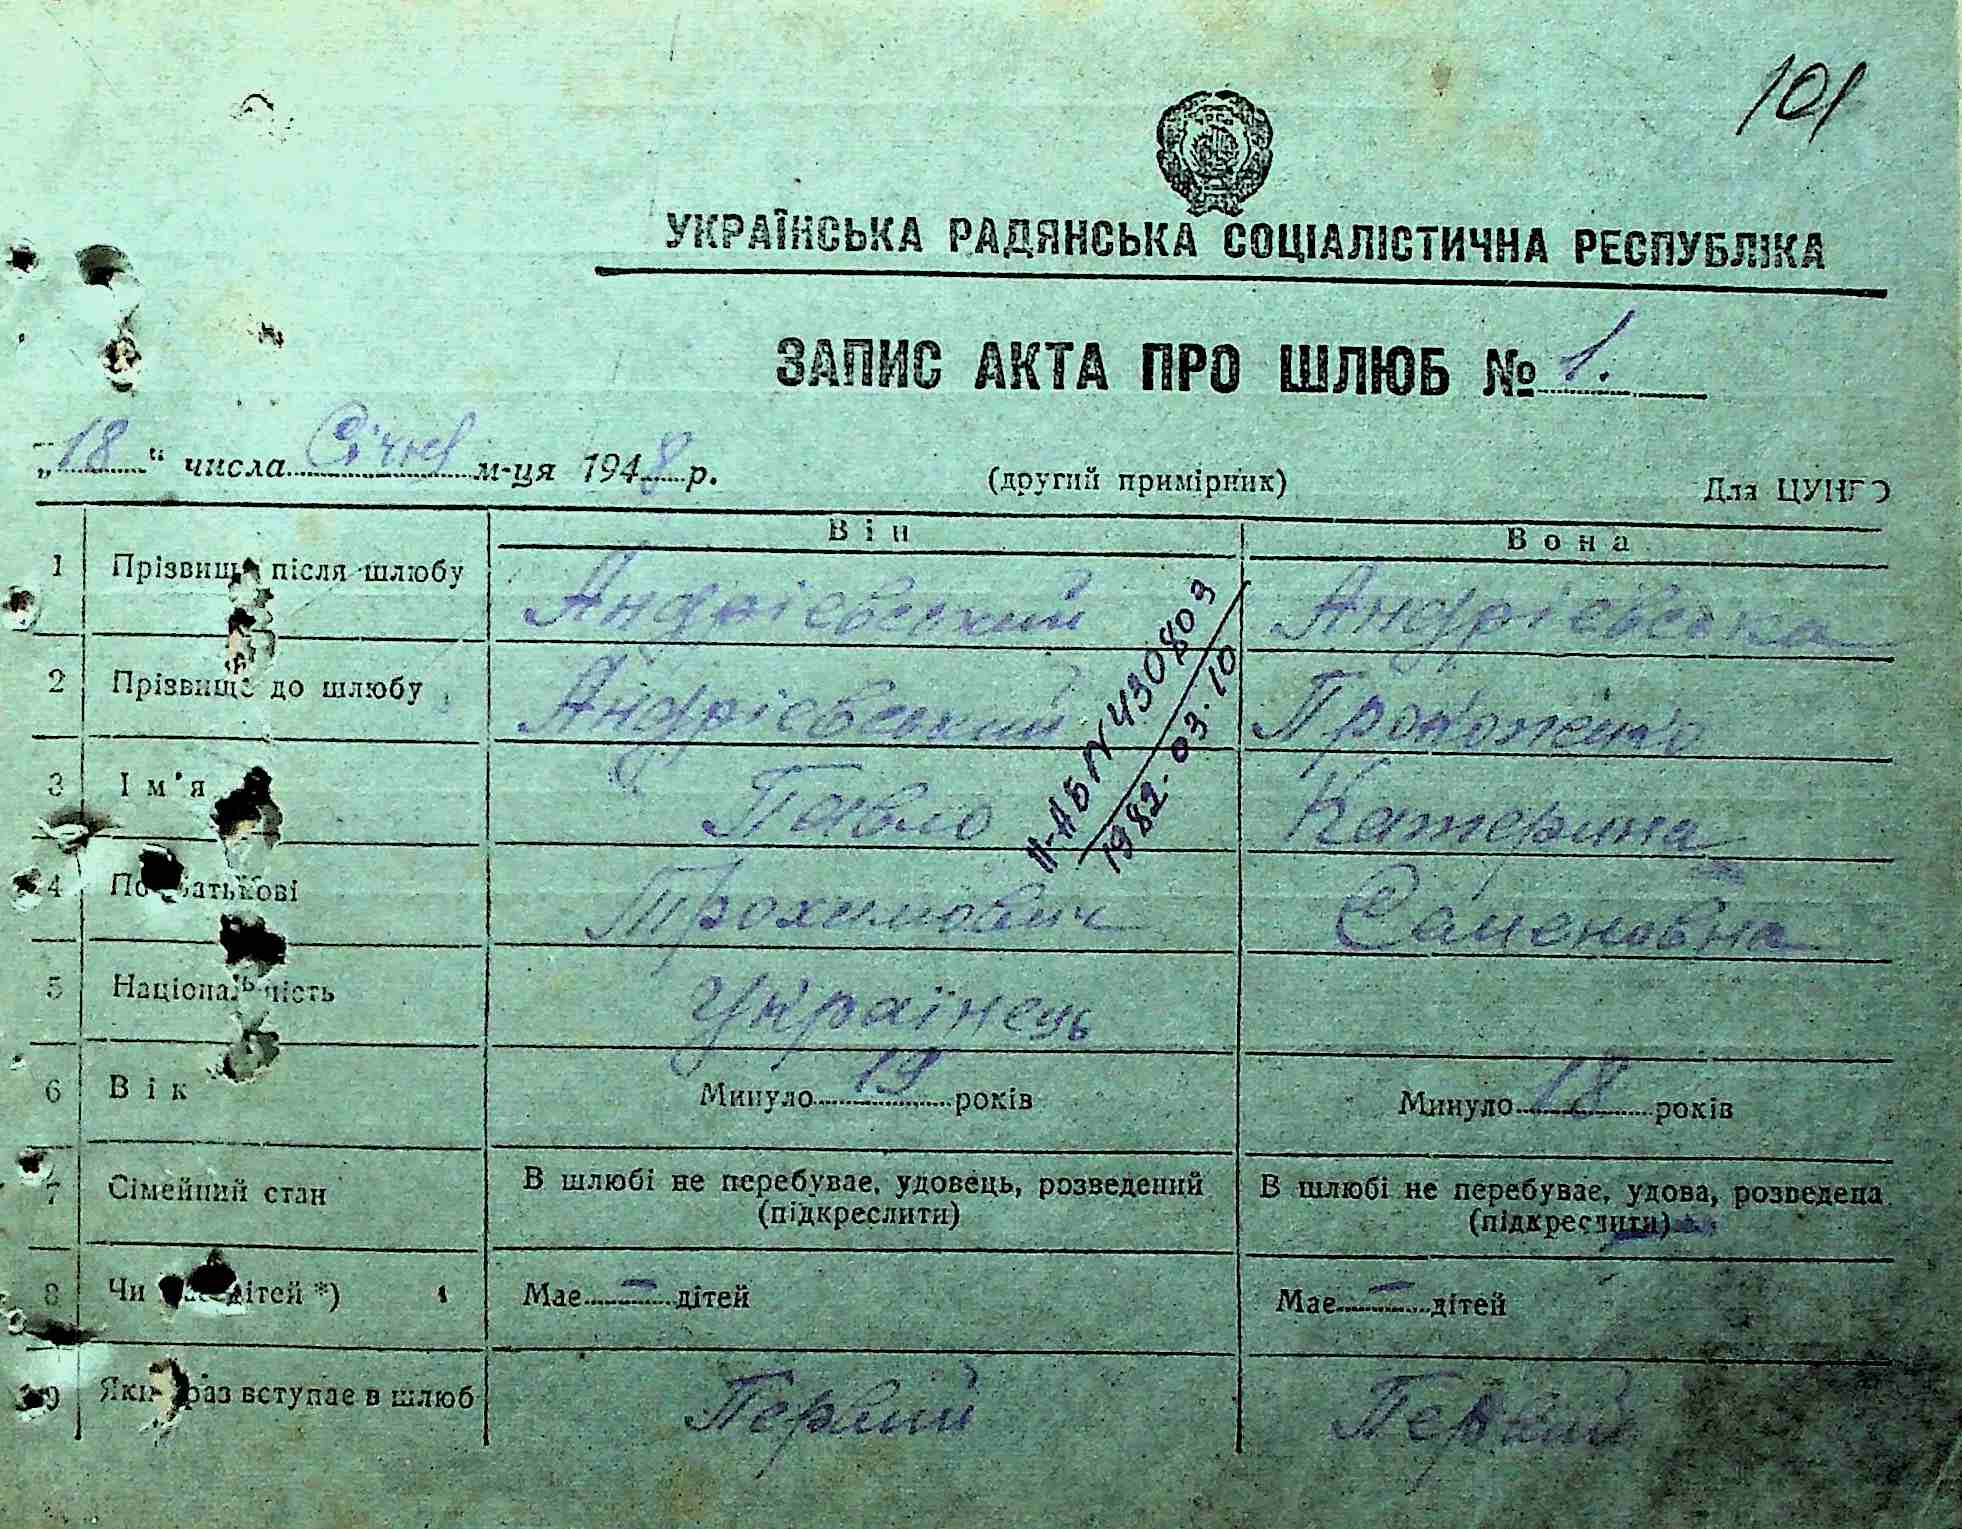 101
УКРАЇНСЬКА РАДЯНСЬКА СОЦІАЛІСТИЧНА РЕСПУБЛІКА
ЗАПИС АКТА ПРО ШЛЮБ № 1.
„18“ числа Січня м-ця 1948 р. (другий примірник) Для ЦУНГО
Він Вона
1 Прізвище після шлюбу Андрієвський Андрієвська
2 Прізвище до шлюбу Андрієвський
3 Ім'я Павло Катерина
4 По батькові Трохимович Саменовна
5 Національність Українець
6 Вік Минуло 19 років Минуло 18 років
7 Сімейний стан В шлюбі не перебуває, удовець, розведений (підкреслити) В шлюбі не перебуває, удова, розведена (підкреслити)
8 Чи має дітей *) Має – дітей Має – дітей
9 Який раз вступає в шлюб Первий Первий
ІІ-АБ № 430803
1982.03.10